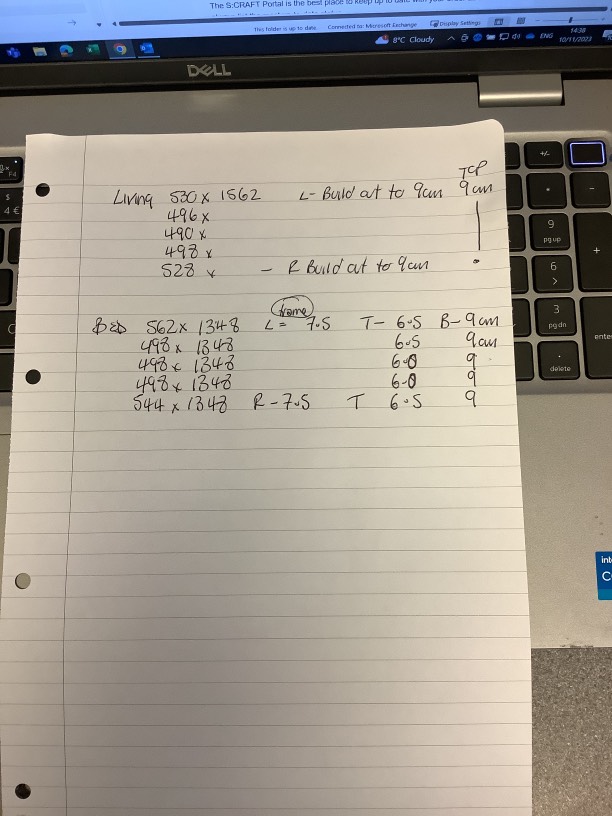 The S:CRAFT Portal is the best place to keep up to date with your
This folder is up to date. Connected to: Microsoft Exchange Display Settings
8°C Cloudy ENG 14:38
10/11/2023
DELL
TCP
Living 530 x 1562 L- Build out to 9cm 9cm
496 x
490 x
498 x
528 x - R Build out to 9cm
frame
Bed 562 x 1348 L = 7.5 T- 6.5 B- 9cm
498 x 1348 6.5 9cm
498 x 1348 6.0 9
498 x 1348 6.0 9
544 x 1348 R- 7.5 T 6.5 9
F4
$
4 €
+/-
9
pg up
6
3
pg dn
enter
delete
+
int